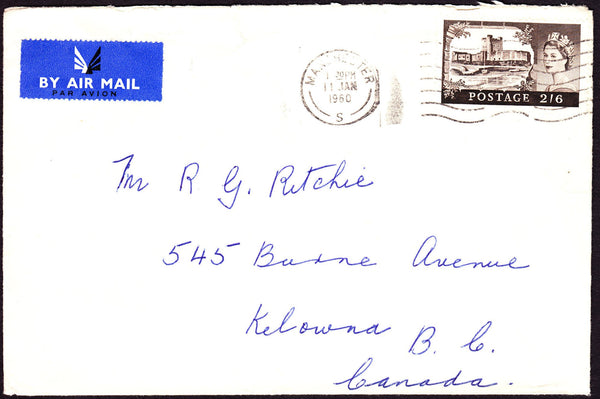 BY AIR MAIL
PAR AVION
MANCHESTER
PM
11 JAN
1960
S
POSTAGE 2/6
Mr R G. Ritchie
545 Burne Avenue
Kelowna B. C.
Canada.